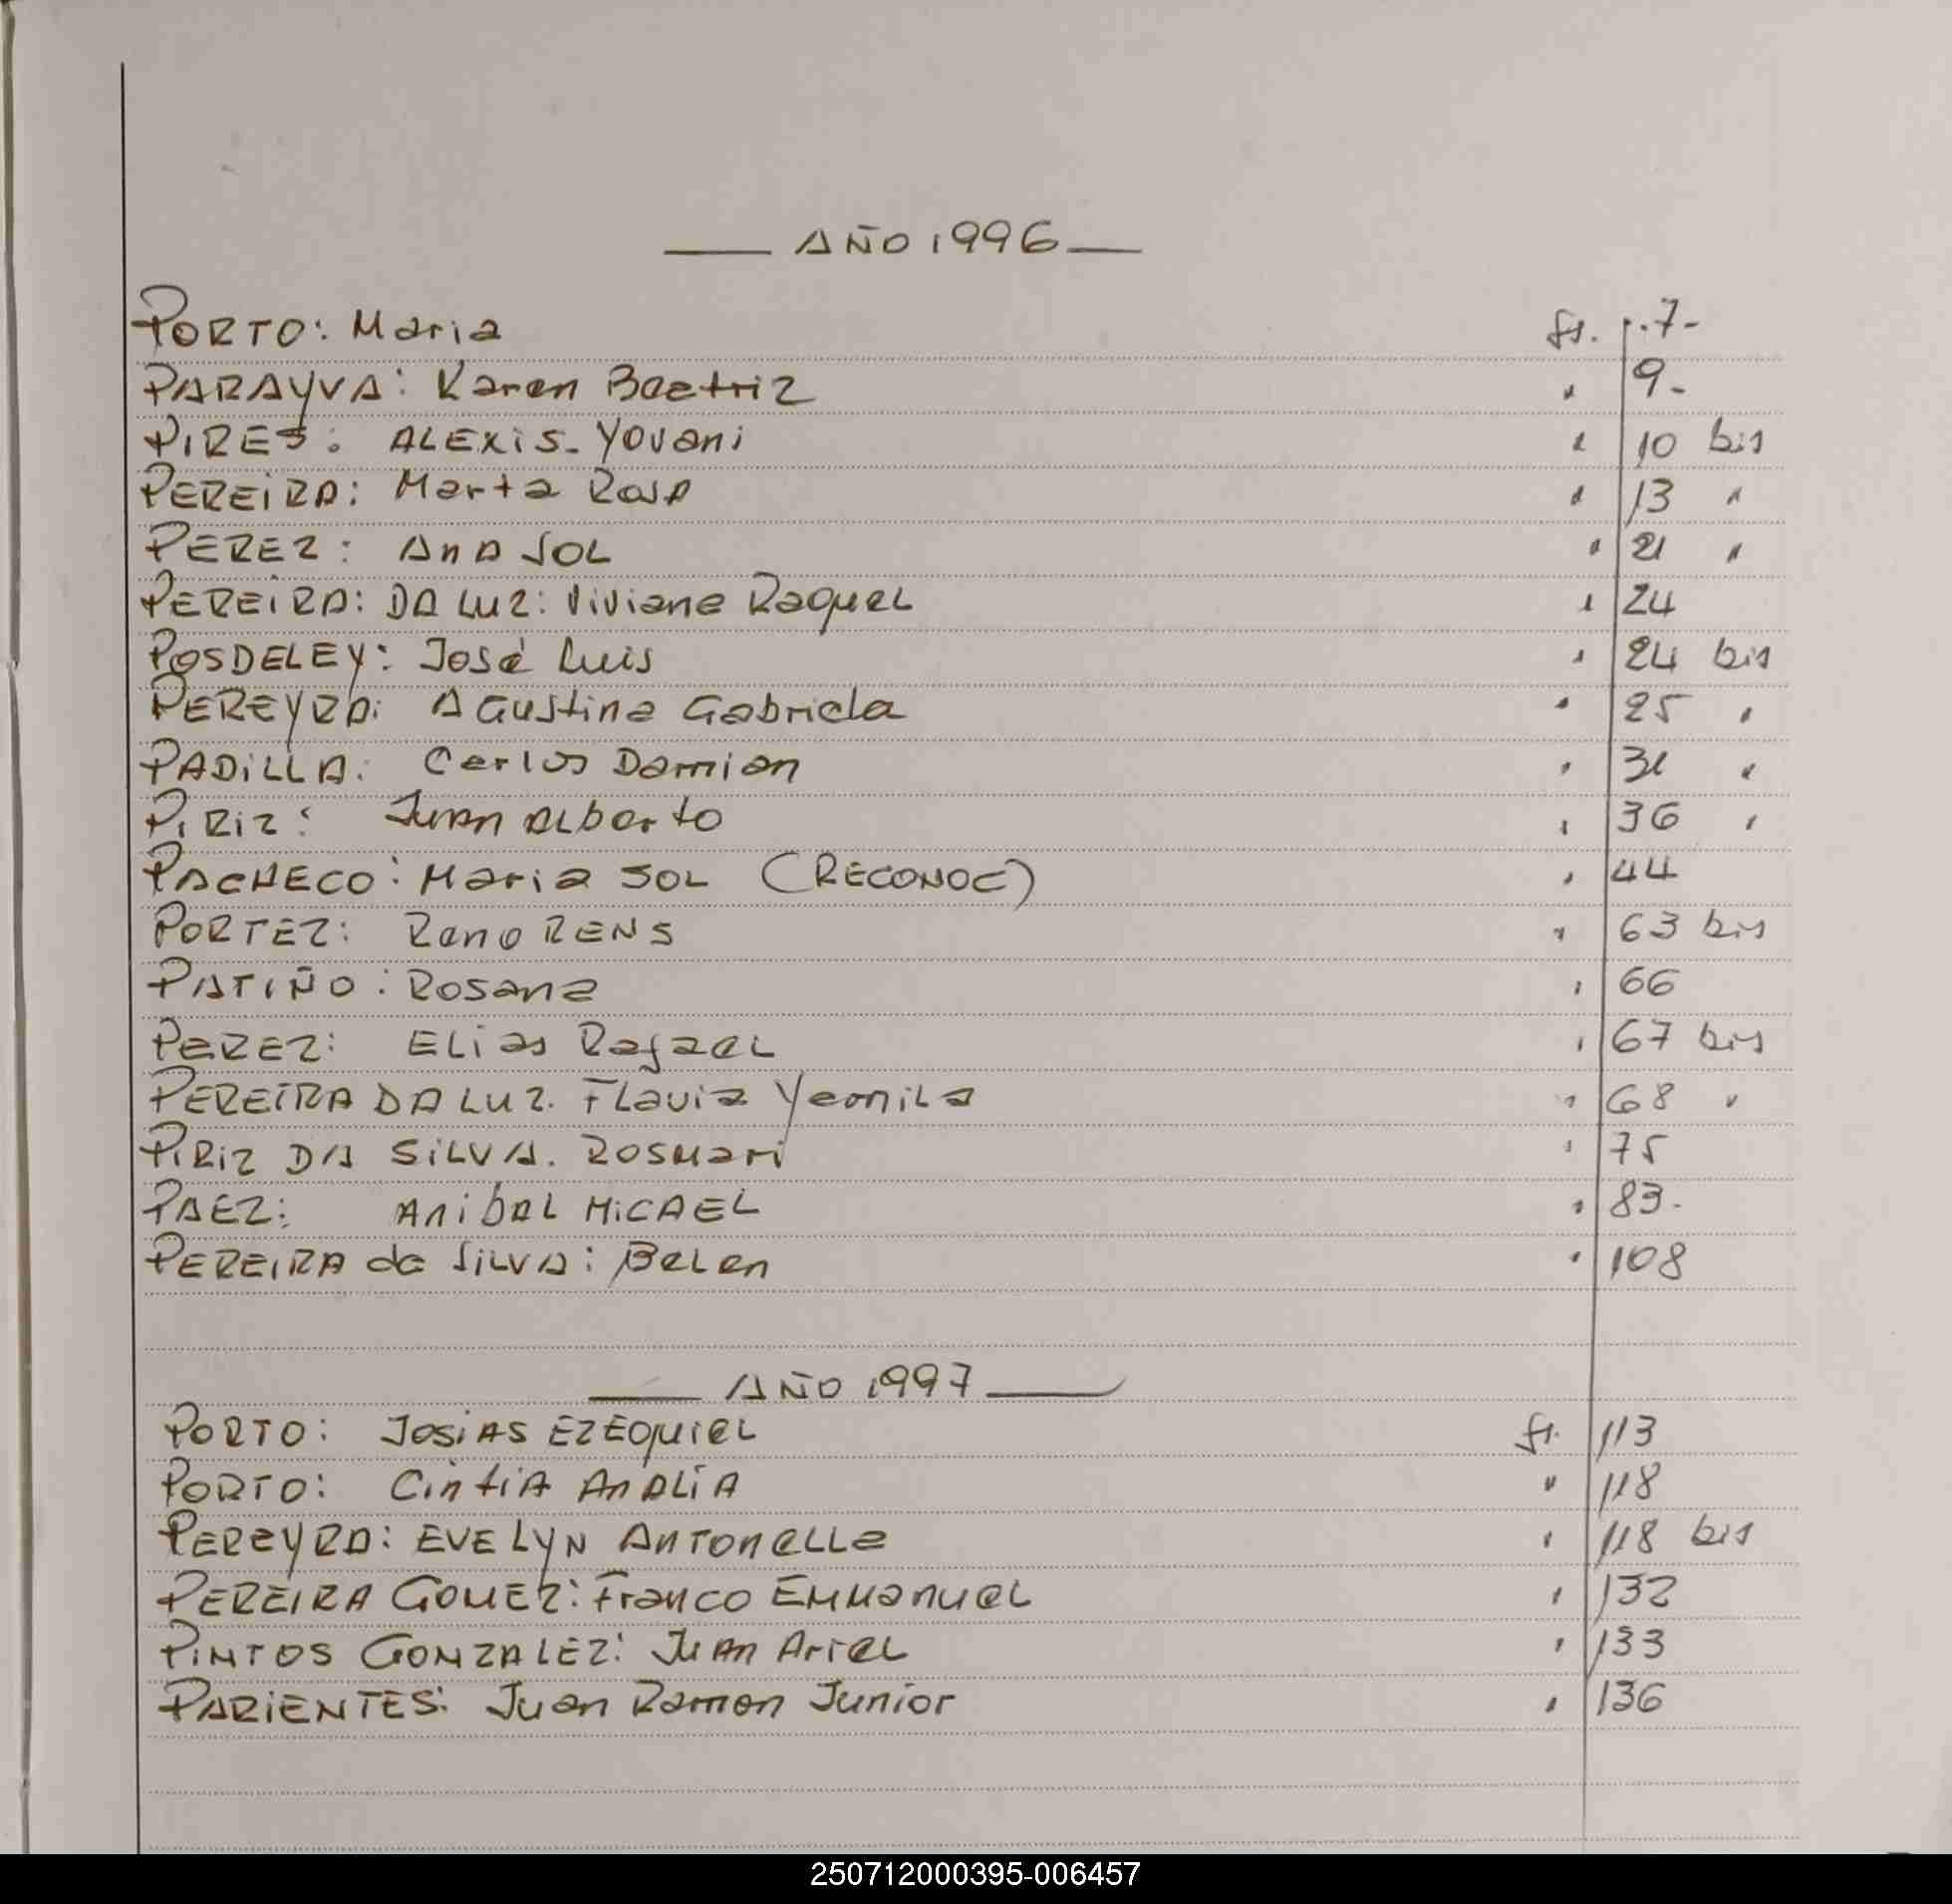 AÑO 1996
PORTO: Maria fs. 7-
PARAYVA: Karen Beatriz " 9-
PIRES: ALEXIS-Yovani " 10 bis
PEREIRA: Marta Rosa " 13 "
PEREZ: Ana SOL " 21 "
PEREIRA: DA LUZ: Viviane RaqueL " 24
POSDELEY: José Luis " 24 bis
PEREYRA: Agustina Gabriela " 25 "
PADILLA: Carlos Damian " 31 "
PIRIZ: Juan ALberto " 36 "
PACHECO: Maria SOL (RECONOC) " 44
PORTEZ: RENS " 63 bis
PATIÑO: Rosana " 66
PEREZ: ELias RafaeL " 67 bis
PEREIRA DA LUZ. FLavia YeomiLa " 68 "
PIRIZ DA SILVA. ROSMari " 75
PAEZ: AnibaL MICAEL " 83-
PEREIRA da SILVA: BeLen " 108
AÑO 1997
PORTO: JosiAS EZEQuieL fs. 113
PORTO: CintiA AnALiA " 118
PEREYRA: EVELYN ANTOneLLa " 118 bis
PEREIRA GOMEZ: Franco EMManueL " 132
PINTOS GONZALEZ: JuAn ArieL " 133
PARIENTES: Juan Ramon Junior " 136
250712000395-006457